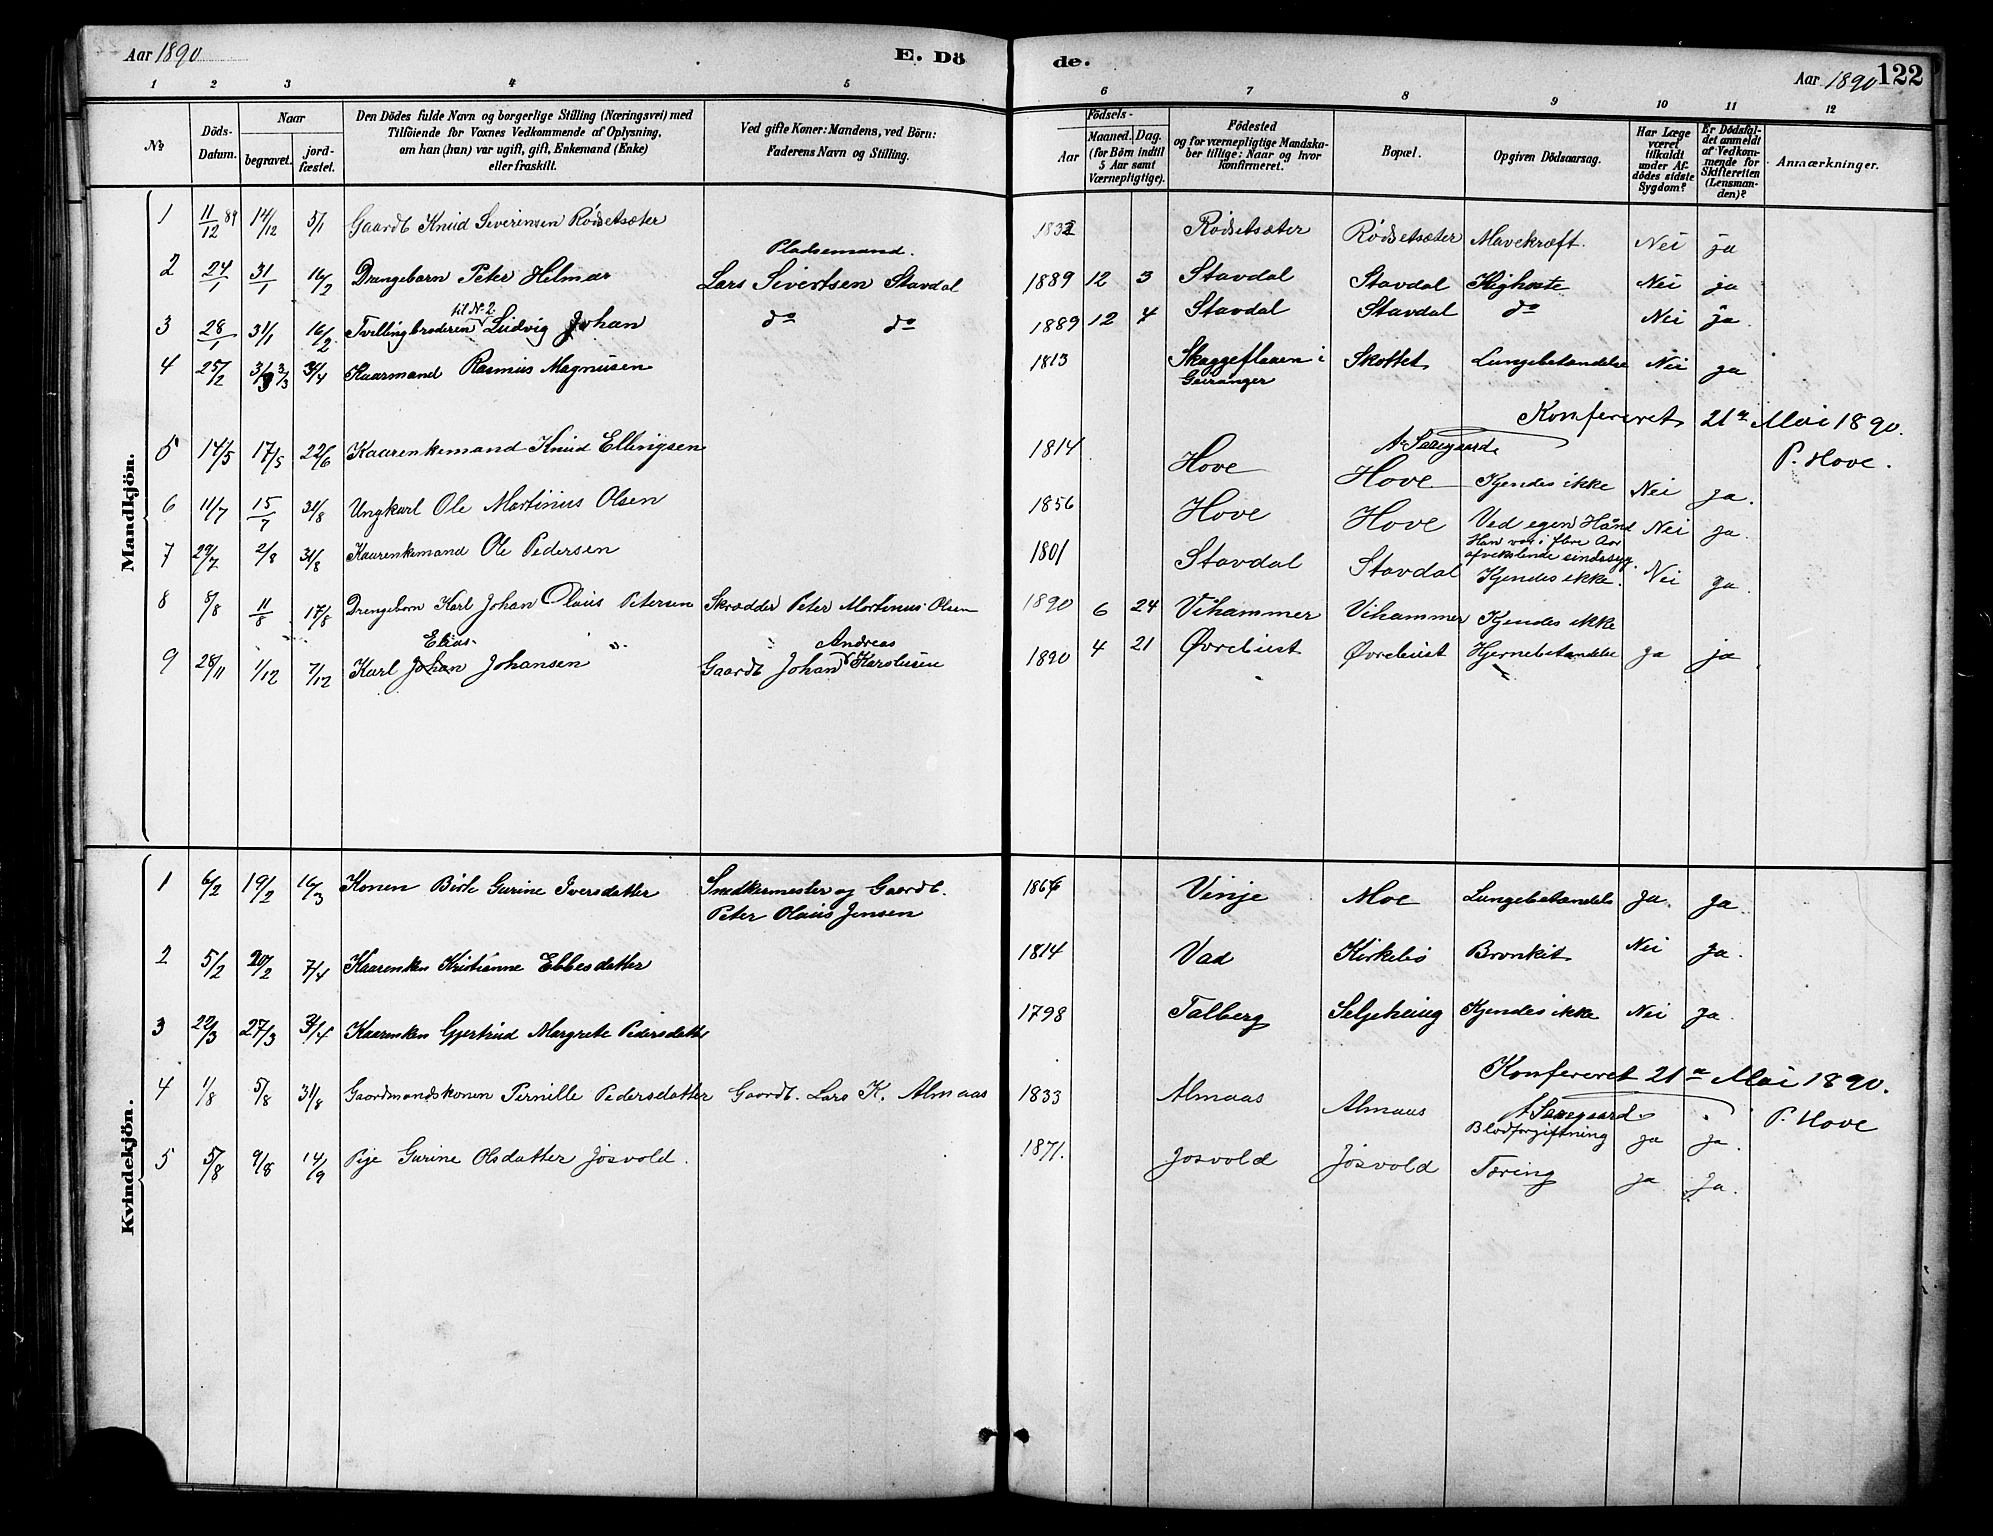 Aar 1890
E. Dö
de.
Aar 1890
122
1 2 3 4 5 6 7 8 9 10 11 12
No
Döds-Datum.
Naar
begravet.
jordfæstet.
Den Dödes fulde Navn og borgerlige Stilling (Næringsvei) med
Tilföiende for Voxnes Vedkommende af Oplysning,
om han (hun) var ugift, gift, Enkemand (Enke)
eller fraskilt.
Ved gifte Koner: Mandens, ved Börn:
Faderens Navn og Stilling.
Födsels-
Aar
Maaned. Dag.
(for Börn indtil
5 Aar samt
Værnepligtige).
Födested
og for værnepligtige Mandskaber tillige: Naar og hvor
konfirmeret.
Bopæl.
Opgiven Dödsaarsag.
Har Læge
været
tilkaldt
under Afdödes sidste
Sygdom?
Er Dödsfaldet anmeldt
af Vedkommende for
Skifteretten
(Lensmanden)?
Anmærkninger.
Mandkjön.
1 11/12 89 14/12 5/1 Gaardb Knud Severinsen Rødsetsæter 1832 Rødsetsæter Rødsetsæter Mavekræft. Nei ja
Pladsemand.
2 24/1 31/1 16/2 Drengebarn Peter Hilmar Lars Sivertsen Stavdal 1889 12 3 Stavdal Stavdal Kighoste Nei ja
til No 2
3 28/1 31/1 16/2 Tvillingbroderen Ludvig Johan do do 1889 12 4 Stavdal Stavdal do Nei ja
4 25/2 3/3 3/4 Kaarmand Rasmus Magnusen 1813 Skaggeflaaen i Geiranger Skottet Lungebetændelse Nei ja
Konfereret 21de Mai 1890.
P. Hove.
5 14/5 17/5 22/6 Kaarenkemand Knud Ellingsen 1814 Hove Hove Kjendes ikke Nei ja.
6 11/7 15/7 31/8 Ungkarl Ole Martinius Olsen 1856 Hove Hove Ved egen Hånd Nei ja.
Han var i flere Aar
afvekslende sindssyg.
7 29/7 2/8 31/8 Kaarenkemand Ole Pedersen 1801 Stavdal Stavdal Kjendes ikke. Nei ja.
8 8/8 11/8 17/8 Drengebarn Karl Johan Olaus Petersen Skrædder Peter Martinus Olsen 1890 6 24 Vihammer Vihammer Kjendes ikke
Elias Andreas
9 28/11 1/12 7/12 Karl Johan Johansen Gaardb Johan Karolusen 1890 4 21 Øvrebust Øvrebust Hjernebetændelse ja ja
Kvindekjön.
1 6/2 19/2 16/3 Konen Birte Gurine Iversdatter Snedkermester og Gaardb. 1864 Vinje Moe Lungebetændels Ja Ja
Peter Olaus Jensen
2 5/2 20/2 7/4 Kaarenken Kristianne Ebbesdatter 1814 Vad Kirkebø Bronkit Nei Ja.
3 22/3 27/3 3/4 Kaarenken Gjertrud Margrete Pedersdatte 1798 Talberg Seljehaug Kjendes ikke Nei Ja
Konfereret 21de Mai 1890.
P. Hove
4 1/8 5/8 31/8 Gaardmandskonen Pernille Pedersdatter Gaardb. Lars K. Almaas 1833 Almaas Almaas Blodforgiftning ja ja.
5 5/8 9/8 14/9 Pige Gurine Olsdatter Jøsvold. 1871. Jøsvold Jøsvold Tæring ja Ja.